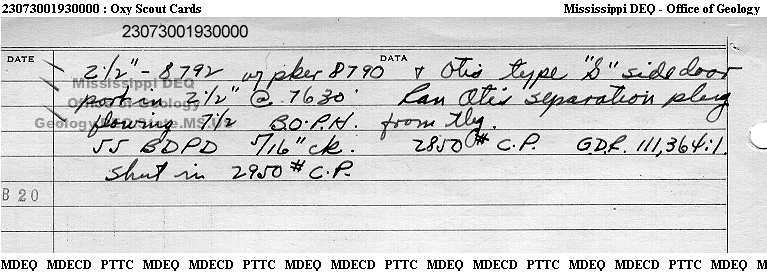 23073001930000 : Oxy Scout Cards Mississippi DEQ - Office of Geology
23073001930000
DATE DATA
2 1/2" - 8792 w/ pker 8790 & Otis type "S" side door
Mississippi DEQ
port in 2 1/2" @ 7630' Ran Otis separation plug
flowing 7 1/2 B.O.P.H. from tbg.
55 BDPD 5/16" ck. 2850# C.P. G.O.R. 111,364:1.
Shut in 2950# C.P.
B 20
MDEQ MDECD PTTC MDEQ MDECD PTTC MDEQ MDECD PTTC MDEQ MDECD PTTC MDEQ MDECD PTTC MDEQ M